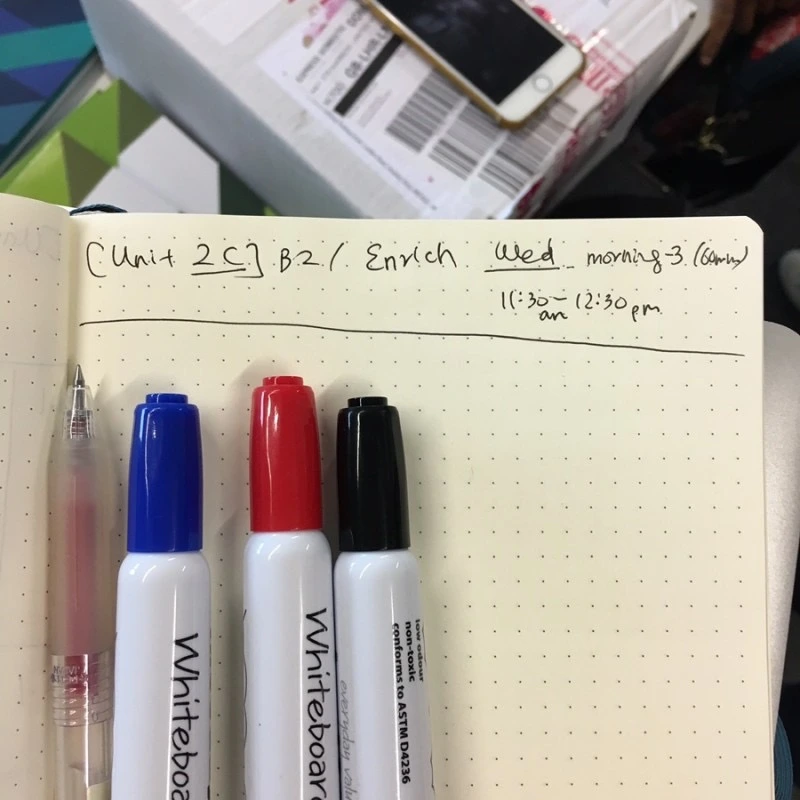 [Unit 2C] B2/ Enrich Wed morning-3 (60min)
11:30 - 12:30 pm
am
Whiteboa
Whiteboard
low odour
non-toxic
conforms to ASTM D4236